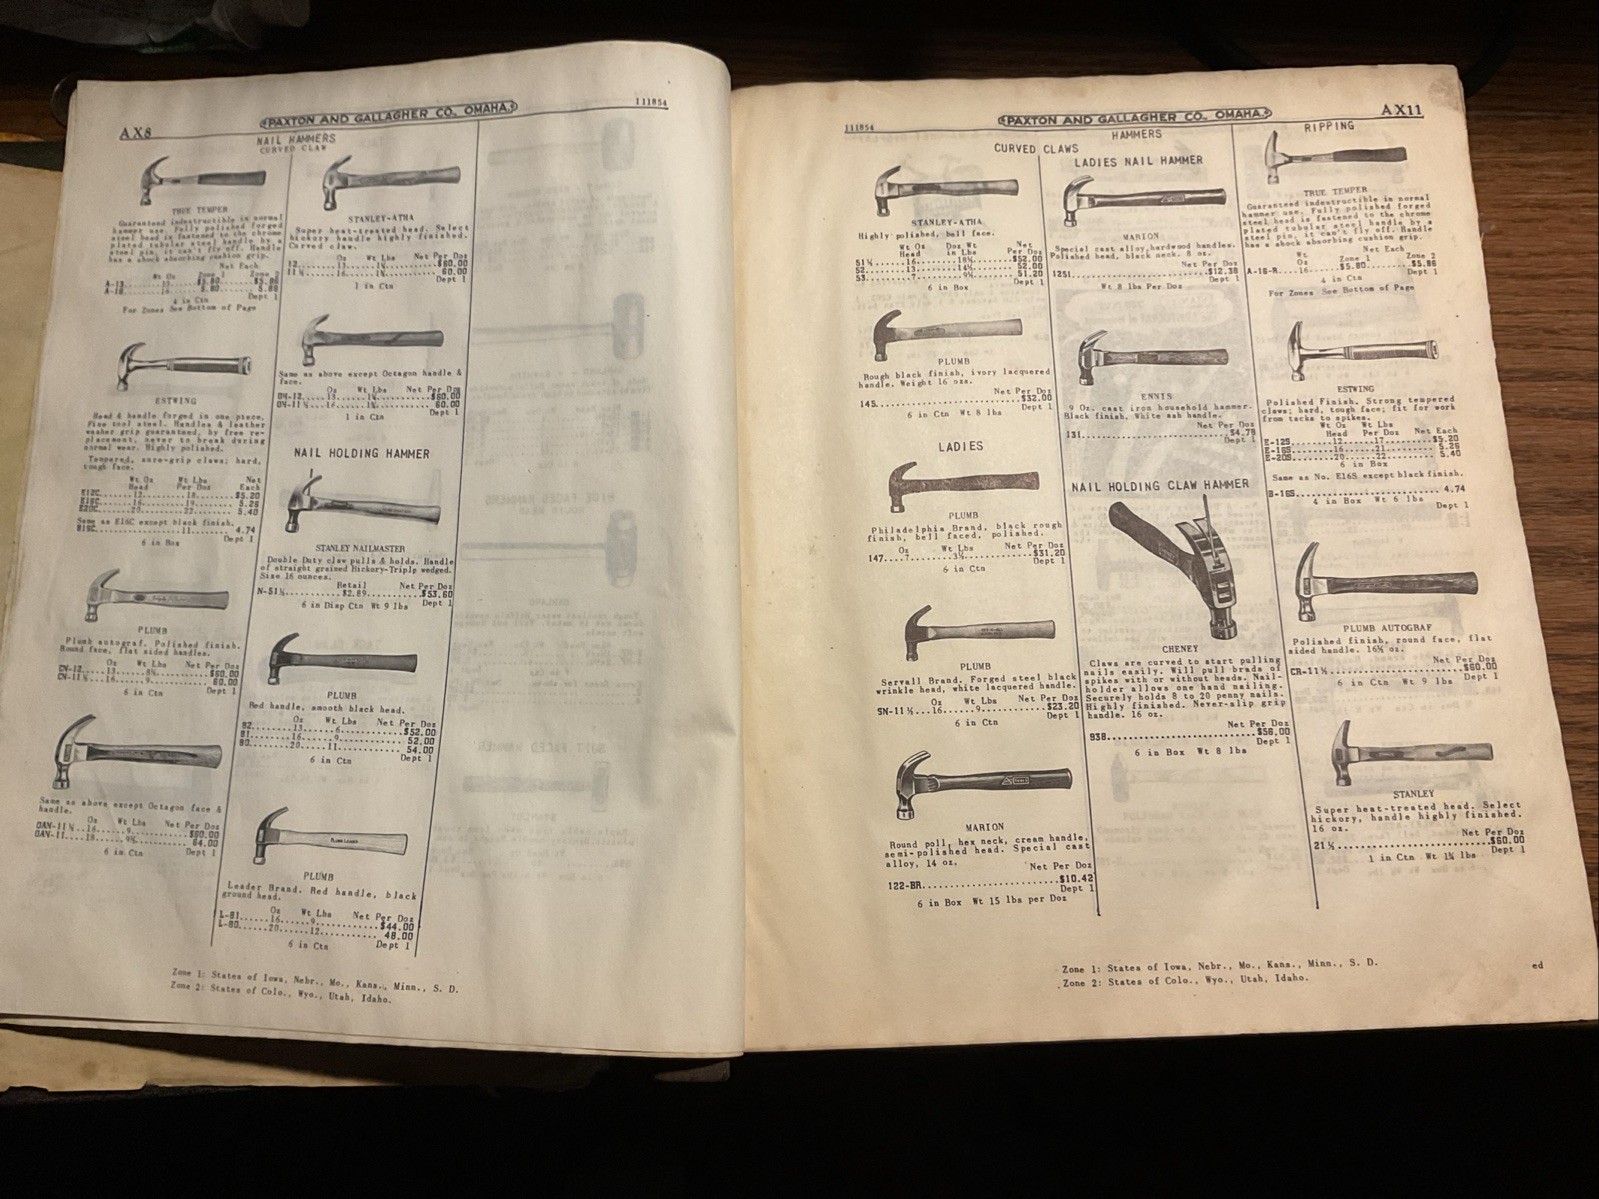 AX8
PAXTON AND GALLAGHER CO. OMAHA.
111854
NAIL HAMMERS
CURVED CLAW
TRUE TEMPER
Guaranteed indestructible in normal
hammer use. Fully polished forged
steel head is fastened to the chrome
plated tubular steel handle by a
steel pin, it can't fly off. Handle
has a shock absorbing cushion grip.
Net Each
Wt Oz Zone 1 Zone 2
4 in Ctn Dept 1
For Zones See Bottom of Page
ESTWING
Head & handle forged in one piece.
Fine tool steel. Handles & leather
washer grip guaranteed, by free re-
placement, never to break during
normal wear. Highly polished.
Tempered, sure-grip claws; hard,
tough face.
Wt Oz Wt Lbs Net
Head Per Doz Each
E12C......12........18.......$5.20
E16C......16........19....... 5.26
E20C......20........22....... 5.40
Same as E16C except black finish.
B16C................11....... 4.74
6 in Box Dept 1
PLUMB
Plumb autograf. Polished finish.
Round face, flat sided handles.
Oz Wt Lbs Net Per Doz
CN-12......13....8¾........$60.00
CN-11½.....16....9......... 60.00
6 in Ctn Dept 1
Same as above except Octagon face &
handle.
Oz Wt Lbs Net Per Doz
OAN-11½..16.....9..........$60.00
OAN-11...18.....9¾......... 64.00
6 in Ctn Dept 1
STANLEY-ATHA
Super heat-treated head. Select
hickory handle highly finished.
Curved claw.
Oz Wt Lbs Net Per Doz
12.......13.....1¼.........$60.00
11½......16.....1¾......... 60.00
1 in Ctn Dept 1
Same as above except Octagon handle &
face.
Oz Wt Lbs Net Per Doz
ON-12.....13.....1¼........$60.00
ON-11½....16.....1¾........ 60.00
1 in Ctn Dept 1
NAIL HOLDING HAMMER
STANLEY NAILMASTER
Double Duty claw pulls & holds. Handle
of straight grained Hickory-Triplp wedged.
Size 16 ounces.
Retail Net Per Doz
N-51½...........$2.89.........$53.60
6 in Disp Ctn Wt 9 lbs Dept 1
PLUMB
Red handle, smooth black head.
Oz Wt Lbs Net Per Doz
82.......13.....6..........$52.00
81.......16.....9.......... 52.00
80.......20....11.......... 54.00
6 in Ctn Dept 1
PLUMB
Leader Brand. Red handle, black
ground head.
Oz Wt Lbs Net Per Doz
L-81.....16.....9..........$44.00
L-80.....20....12.......... 48.00
6 in Ctn Dept 1
Zone 1: States of Iowa, Nebr., Mo., Kans., Minn., S. D.
Zone 2: States of Colo., Wyo., Utah, Idaho.
111854
PAXTON AND GALLAGHER CO. OMAHA.
AX11
HAMMERS
CURVED CLAWS
STANLEY-ATHA
Highly polished, bell face.
Wt Oz Doz Wt Net
Head in Lbs Per Doz
51½......16......16¼.....$52.00
52.......13......14¼..... 52.00
53........7.......9¾..... 51.20
6 in Box Dept 1
PLUMB
Rough black finish, ivory lacquered
handle. Weight 16 oz.
Net Per Doz
145........................$32.00
6 in Ctn Wt 8 lbs Dept 1
LADIES
PLUMB
Philadelphia Brand, black rough
finish, bell faced, polished.
Oz Wt Lbs Net Per Doz
147....7......3½.........$31.20
6 in Ctn Dept 1
PLUMB
Servall Brand. Forged steel black
wrinkle head, white lacquered handle.
Oz Wt Lbs Net Per Doz
SN-11½...16.....9........$23.20
6 in Ctn Dept 1
MARION
Round poll, hex neck, cream handle,
semi-polished head. Special cast
alloy, 14 oz.
Net Per Doz
122-BR.....................$10.42
Dept 1
6 in Box Wt 15 lbs per Doz
LADIES NAIL HAMMER
MARION
Special cast alloy, hardwood handles.
Polished head, black neck. 8 oz.
Net Per Doz
1251.......................$12.38
Dept 1
Wt 8 lbs Per Doz
ENNIS
9 Oz. cast iron household hammer-
Black finish. White ash handle.
Net Per Doz
131.........................$4.79
Dept 1
NAIL HOLDING CLAW HAMMER
CHENEY
Claws are curved to start pulling
nails easily. Will pull brads of
spikes with or without heads. Nail-
holder allows one hand nailing.
Securely holds 8 to 20 penny nails.
Highly finished. Never-slip grip
handle. 16 oz.
Net Per Doz
938........................$56.00
Dept 1
6 in Box Wt 8 lbs
RIPPING
TRUE TEMPER
Guaranteed indestructible in normal
hammer use. Fully polished forged
steel head is fastened to the chrome
plated tubular steel handle by a
steel pin, it can't fly off. Handle
has a shock absorbing cushion grip.
Net Each
Wt
Oz Zone 1 Zone 2
A-16-R...16......$5.80......$5.86
4 in Ctn Dept 1
For Zones See Bottom of Page
ESTWING
Polished Finish. Strong tempered
claws; hard, tough face; fit for work
from tacks to spikes.
Wt Oz Wt Lbs
Head Per Doz Net Each
E-12S......12......17.......$5.20
E-16S......16......21....... 5.26
E-20S......20......22....... 5.40
6 in Box
Same as No. E16S except black finish.
B-16S....................... 4.74
4 in Box Wt 6 lbs Dept 1
PLUMB AUTOGRAF
Polished finish, round face, flat
sided handle. 16½ oz.
Net Per Doz
CR-11½.....................$60.00
6 in Ctn Wt 9 lbs Dept 1
STANLEY
Super heat-treated head. Select
hickory, handle highly finished.
16 oz.
Net Per Doz
21½........................$60.00
1 in Ctn Wt 1¾ lbs Dept 1
Zone 1: States of Iowa, Nebr., Mo., Kans., Minn., S. D.
Zone 2: States of Colo., Wyo., Utah, Idaho.
ed